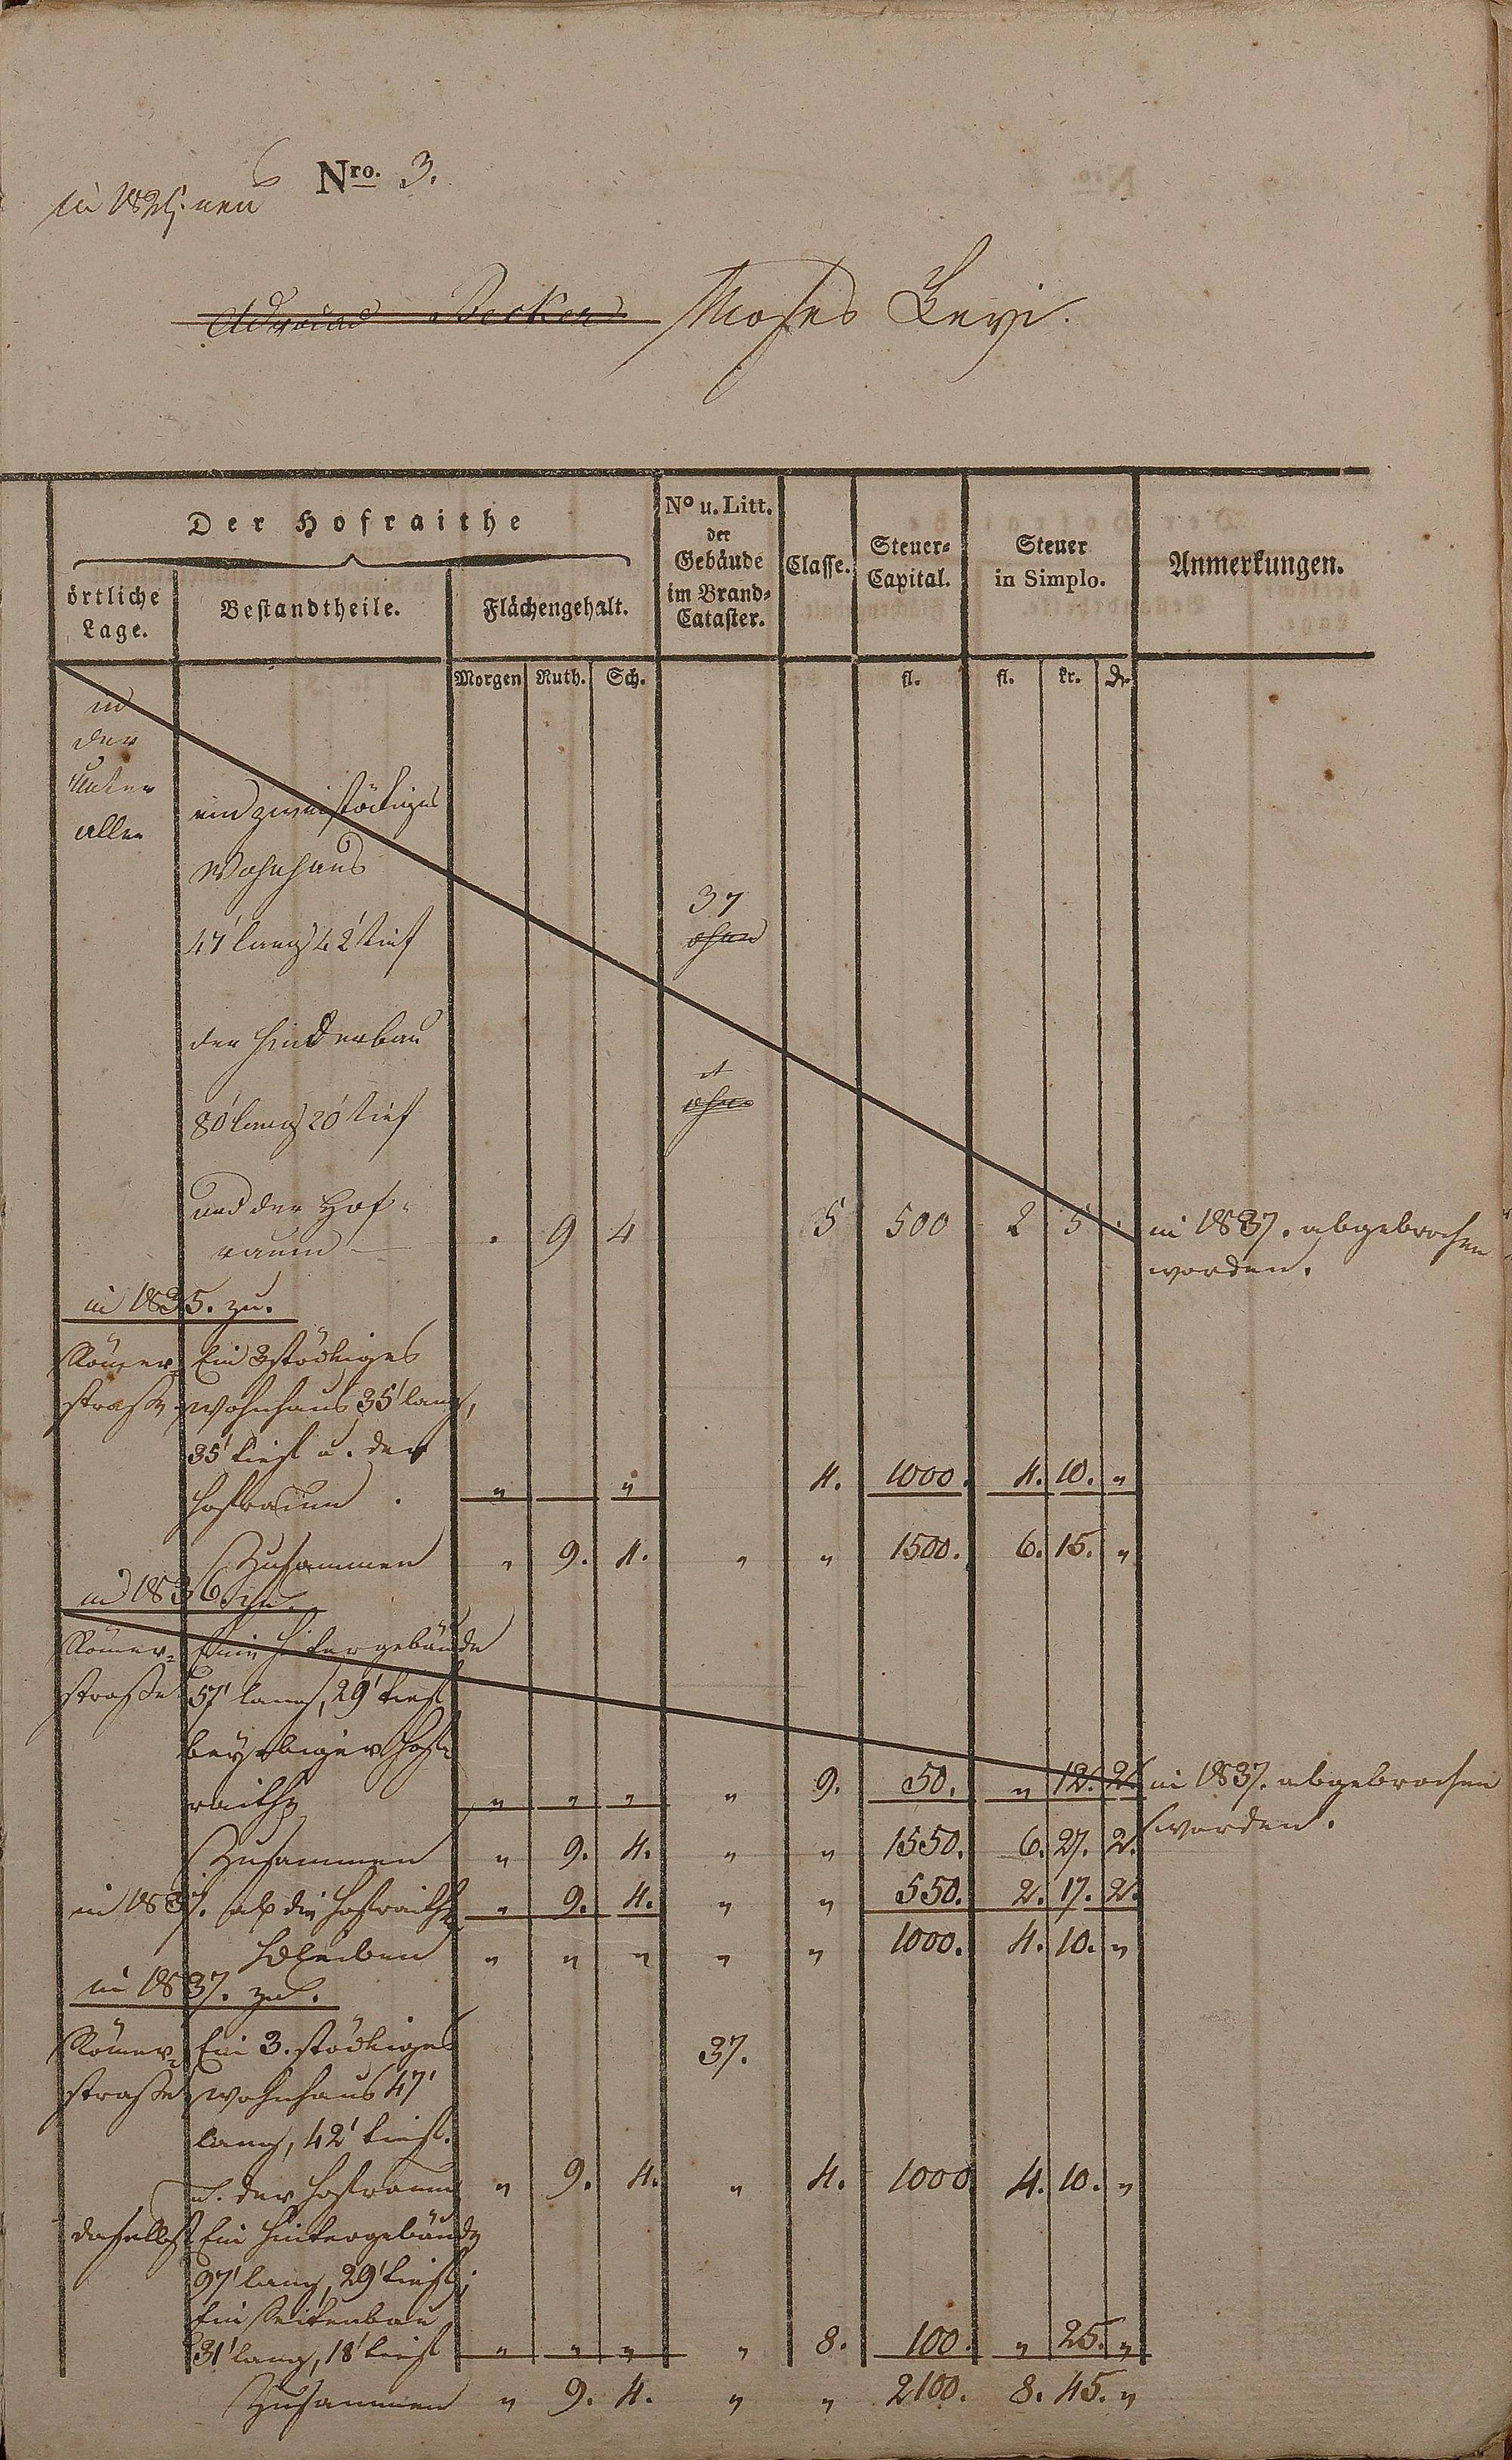 Nro. 3.
in 1824. neu
Adrian Becker Moses Levi.
Der Hofraithe
örtliche Lage.
Bestandtheile.
Flächengehalt.
No u. Litt. der Gebäude im Brand-Cataster.
Classe.
Steuer-Capital.
Steuer in Simplo.
Anmerkungen.
Morgen Ruth. Sch. fl. fl. kr. dr.
in
der
Unter
allee
ein zweistöckiges
Wohnhaus
37
47' lang 42' tief ohne
der Hinderbau
80' lang 20' tief ohne
und der Hof-
raum — . 9 4 5 500 2 5 . in 1837. abgebrochen
worden.
in 1835. zu.
Römer- Ein 3stöckiges
straße. Wohnhaus 35' lang,
35' tief u. der
Hofraum . " " 4. 1000. 4. 10. "
Zusammen " 9. 4. " " 1500. 6. 15. "
in 1836. zu.
Römer- Ein Hintergebäude
straße 57' lang, 29' tief
bey obiger Hof-
raithe " " " " 9. 50. " 12. 2. in 1837. abgebrochen
worden.
Zusammen " 9. 4. " " 1550. 6. 27. 2.
in 1837. ab die Hofraithe " 9. 4. " " 550. 2. 17. 2.
bleiben " " " " " 1000. 4. 10. "
in 1837. zu.
Römer- Ein 3. stöckiges 37.
straße Wohnhaus 47'
lang, 42' tief.
u. der Hofraum " 9. 4. " 4. 1000 4. 10. "
daselbst Ein Hintergebäude
97' lang, 29' tief;
Ein Seitenbau
31' lang, 18' tief " " " " 8. 100. " 25. "
Zusammen " 9. 4. " " 2100. 8. 45. "